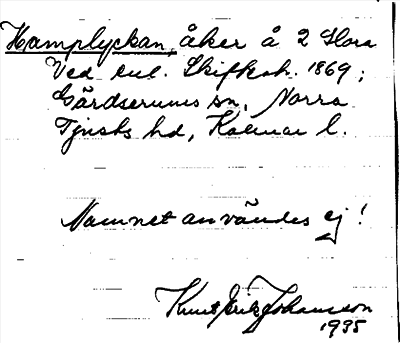 Hamplyckan, åker å 2 Stora
Ved enl. Skifkah. 1869;
Gärdserums sn, Norra
Tjusts hd, Kalmar l.
Namnet användes ej!
Knut Erik Johansson
1935